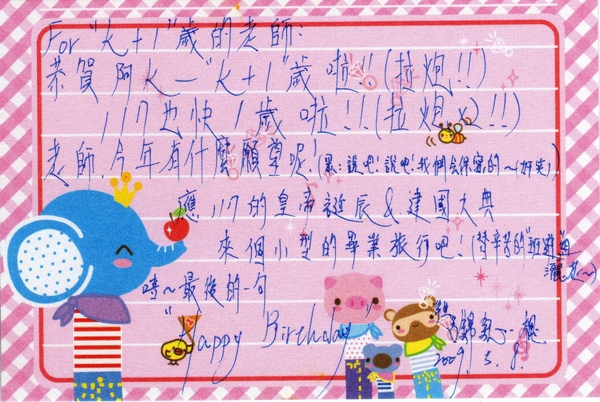 For "k+1"歲的老師:
恭賀阿K一"k+1"歲啦!!(拉炮!!)
117也快1歲啦!!(拉炮x2!!)
老師,今年有什麼願望呢!(眾:說吧!說吧!我們會保密的～(奸笑))
應117的皇帝誕辰&建國大典
來個小型的畢業旅行吧!(替辛苦的
灑花～)
最後的一句
"Happy Birthday"
2009. 5. 8.